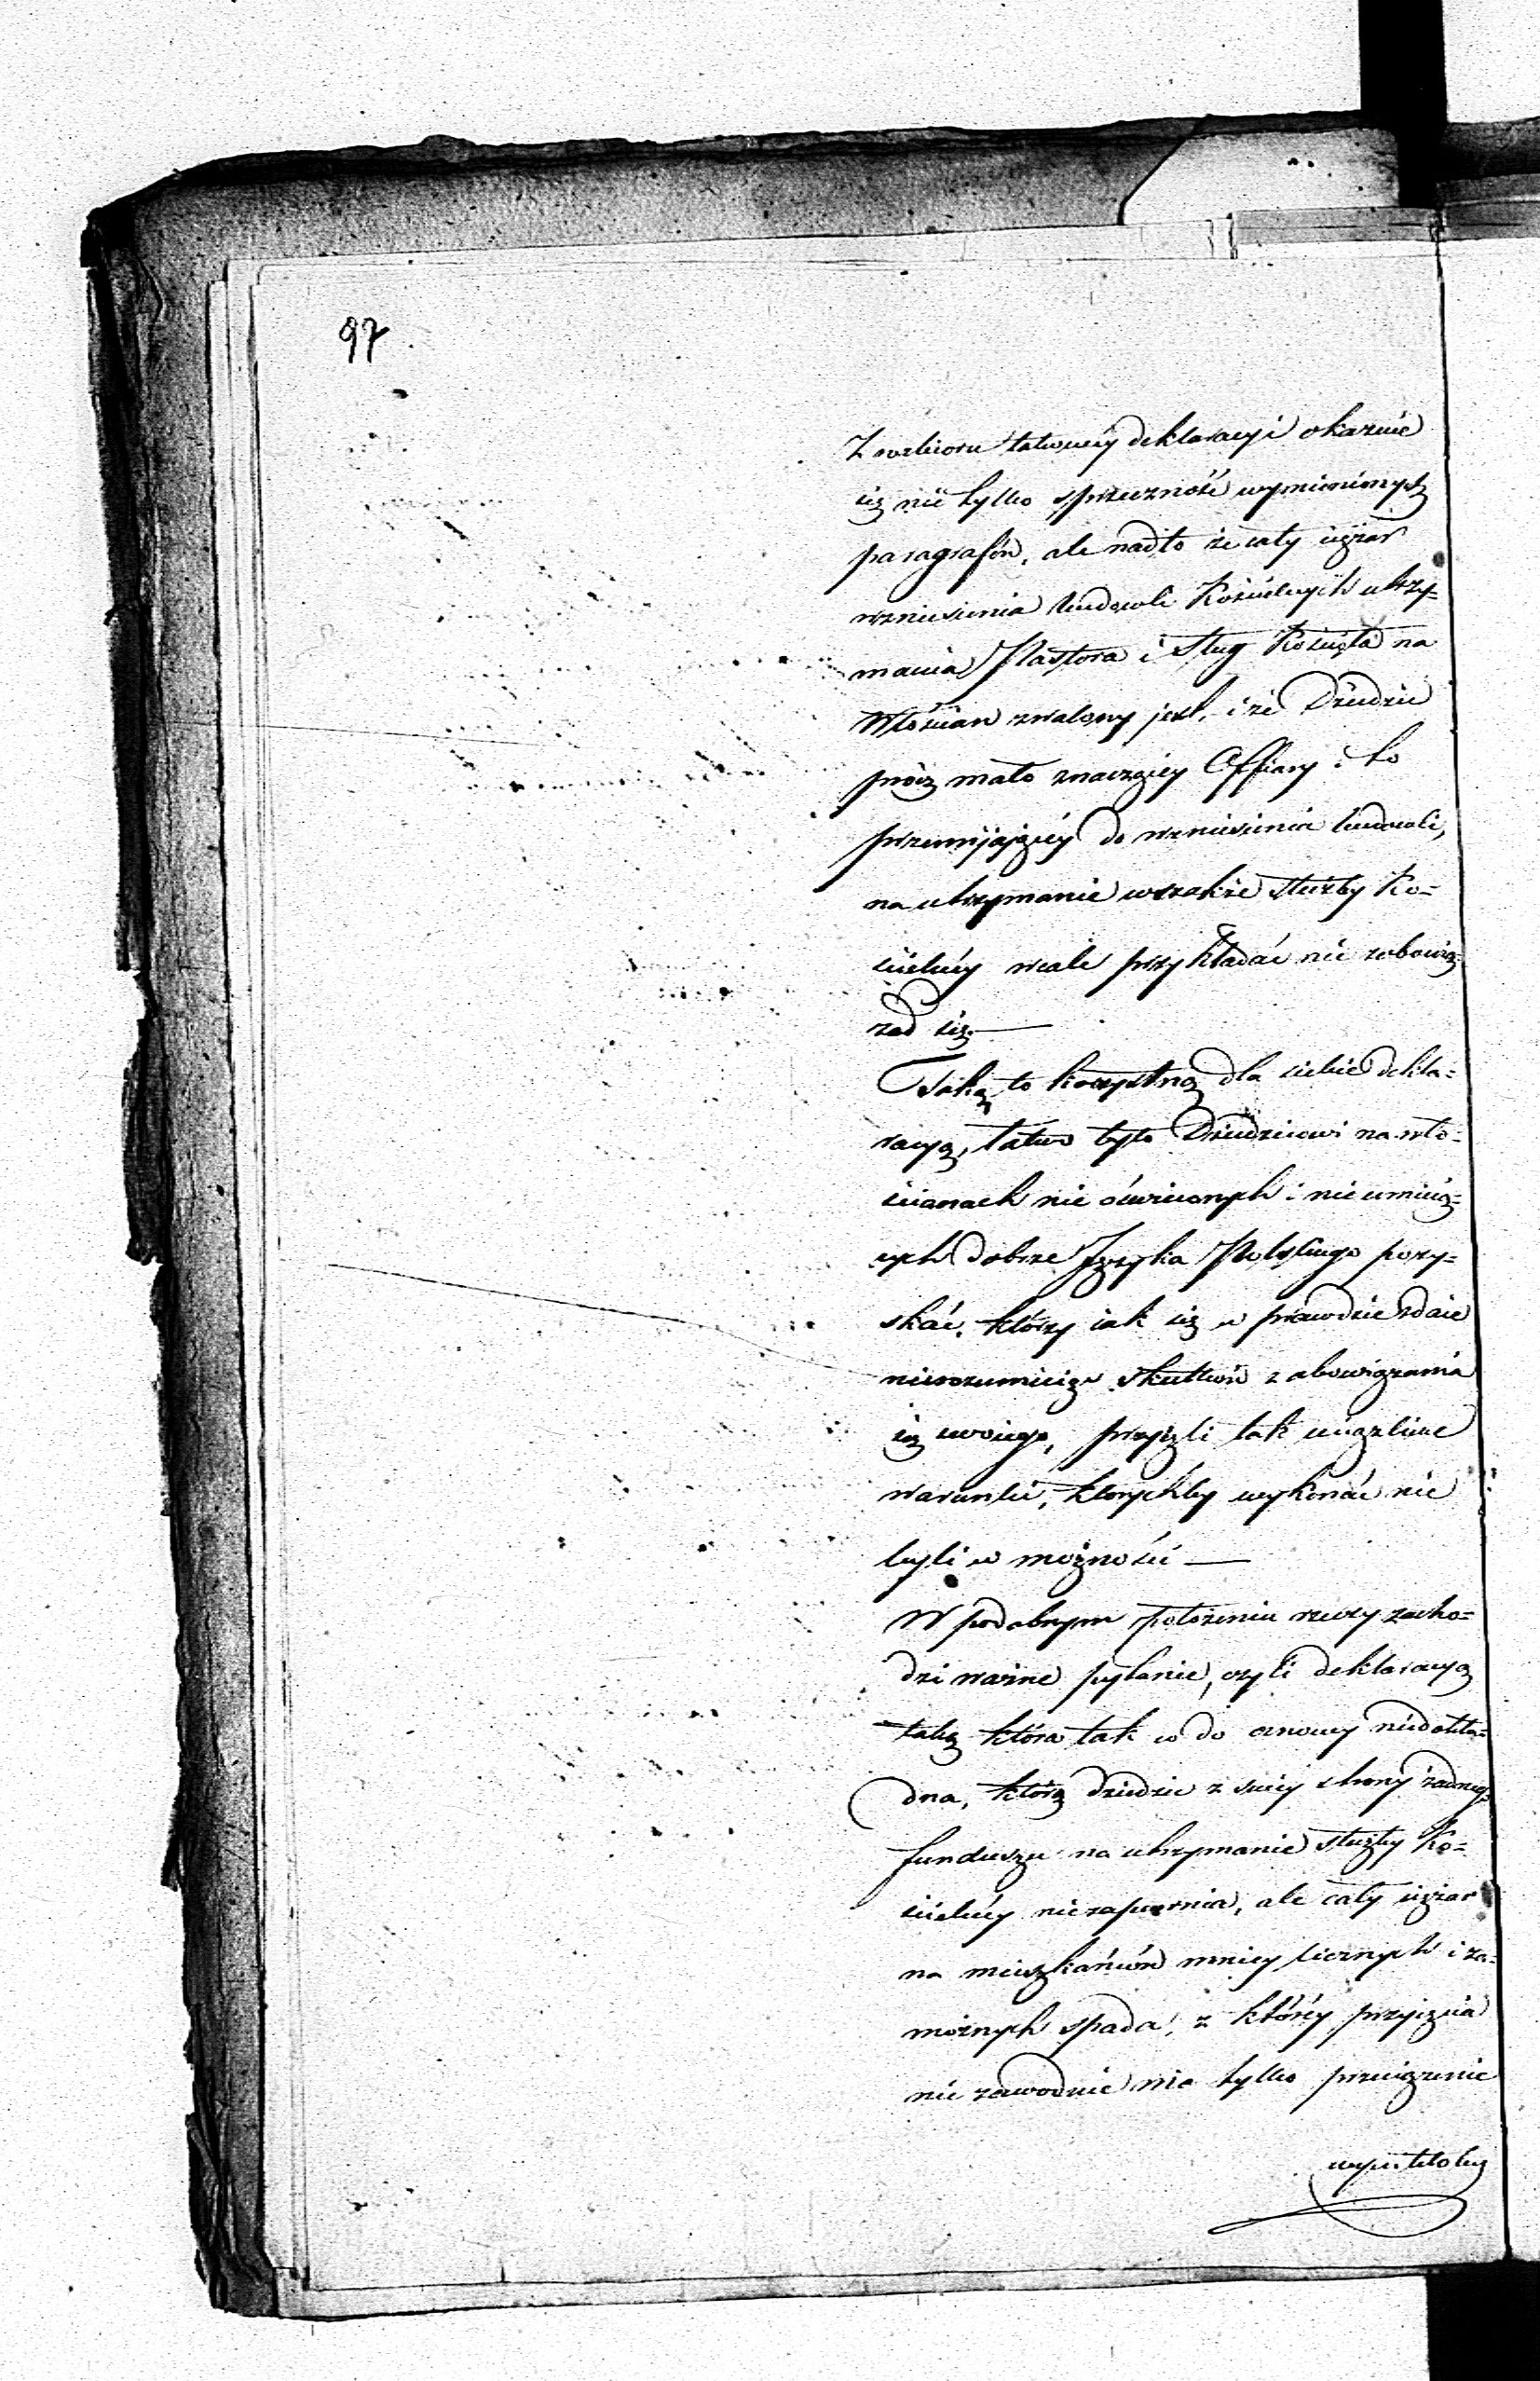 97
Z rozbioru takowéy deklaracyi okazuie
się nie tylko sprzeczność wymienionych
paragrafów, ale nadto że cały ciężar
wzniesienia budowli Kościelnych utrzy=
mania Pastora i Sług Kościoła na
Włościan zwalony jest, i że Dziedzic
prócz mało znaczącéy Offiary i to
przemijającéy do wzniesienia budowli,
na utrzymanie wszakże służby Ko=
ścielnéy wcale przykładać nie zobowią=
zał się. —
Taką to korzystną dla siebie dekla=
racyą, łatwo było Dziedzicowi na wło=
ścianach nie oświeconych i nie umieią=
cych dobrze Języka Polskiego pozy=
skać, którzy iak się w prawdzie zdaie
nierozumieiąc skutków zobowiązania
się swoiego, przyięli tak uciążliwe
warunki, którychby wykonać nie
byli w możności —
W podobnym położeniu rzeczy zacho=
dzi ważne pytanie, czyli deklaracyą
taką która tak co do osnowy niedokła=
dna, którą dziedzic z swéy strony żadnego
funduszu na utrzymanie służby Ko=
ścielnéy niezapewnia, ale cały ciężar
na mieszkańców mniey licznych i za=
możnych spada, z któréy przyięcia
nie zawodnie nie tylko przeciążenie